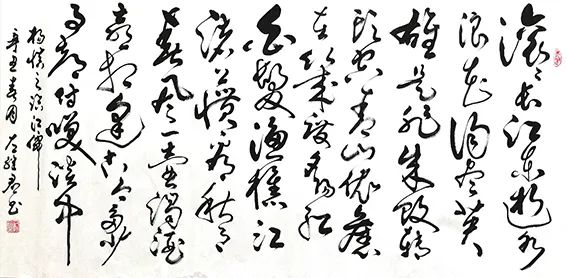 滚々長江東逝水
浪花淘尽英
雄是非成敗轉
頭空青山依舊
在幾度夕陽紅
白髮漁樵江
渚上慣看秋月
春風一壺濁酒
喜相逢古今多少
事都付咲談中
楊慎之临江僊
辛丑春月 书